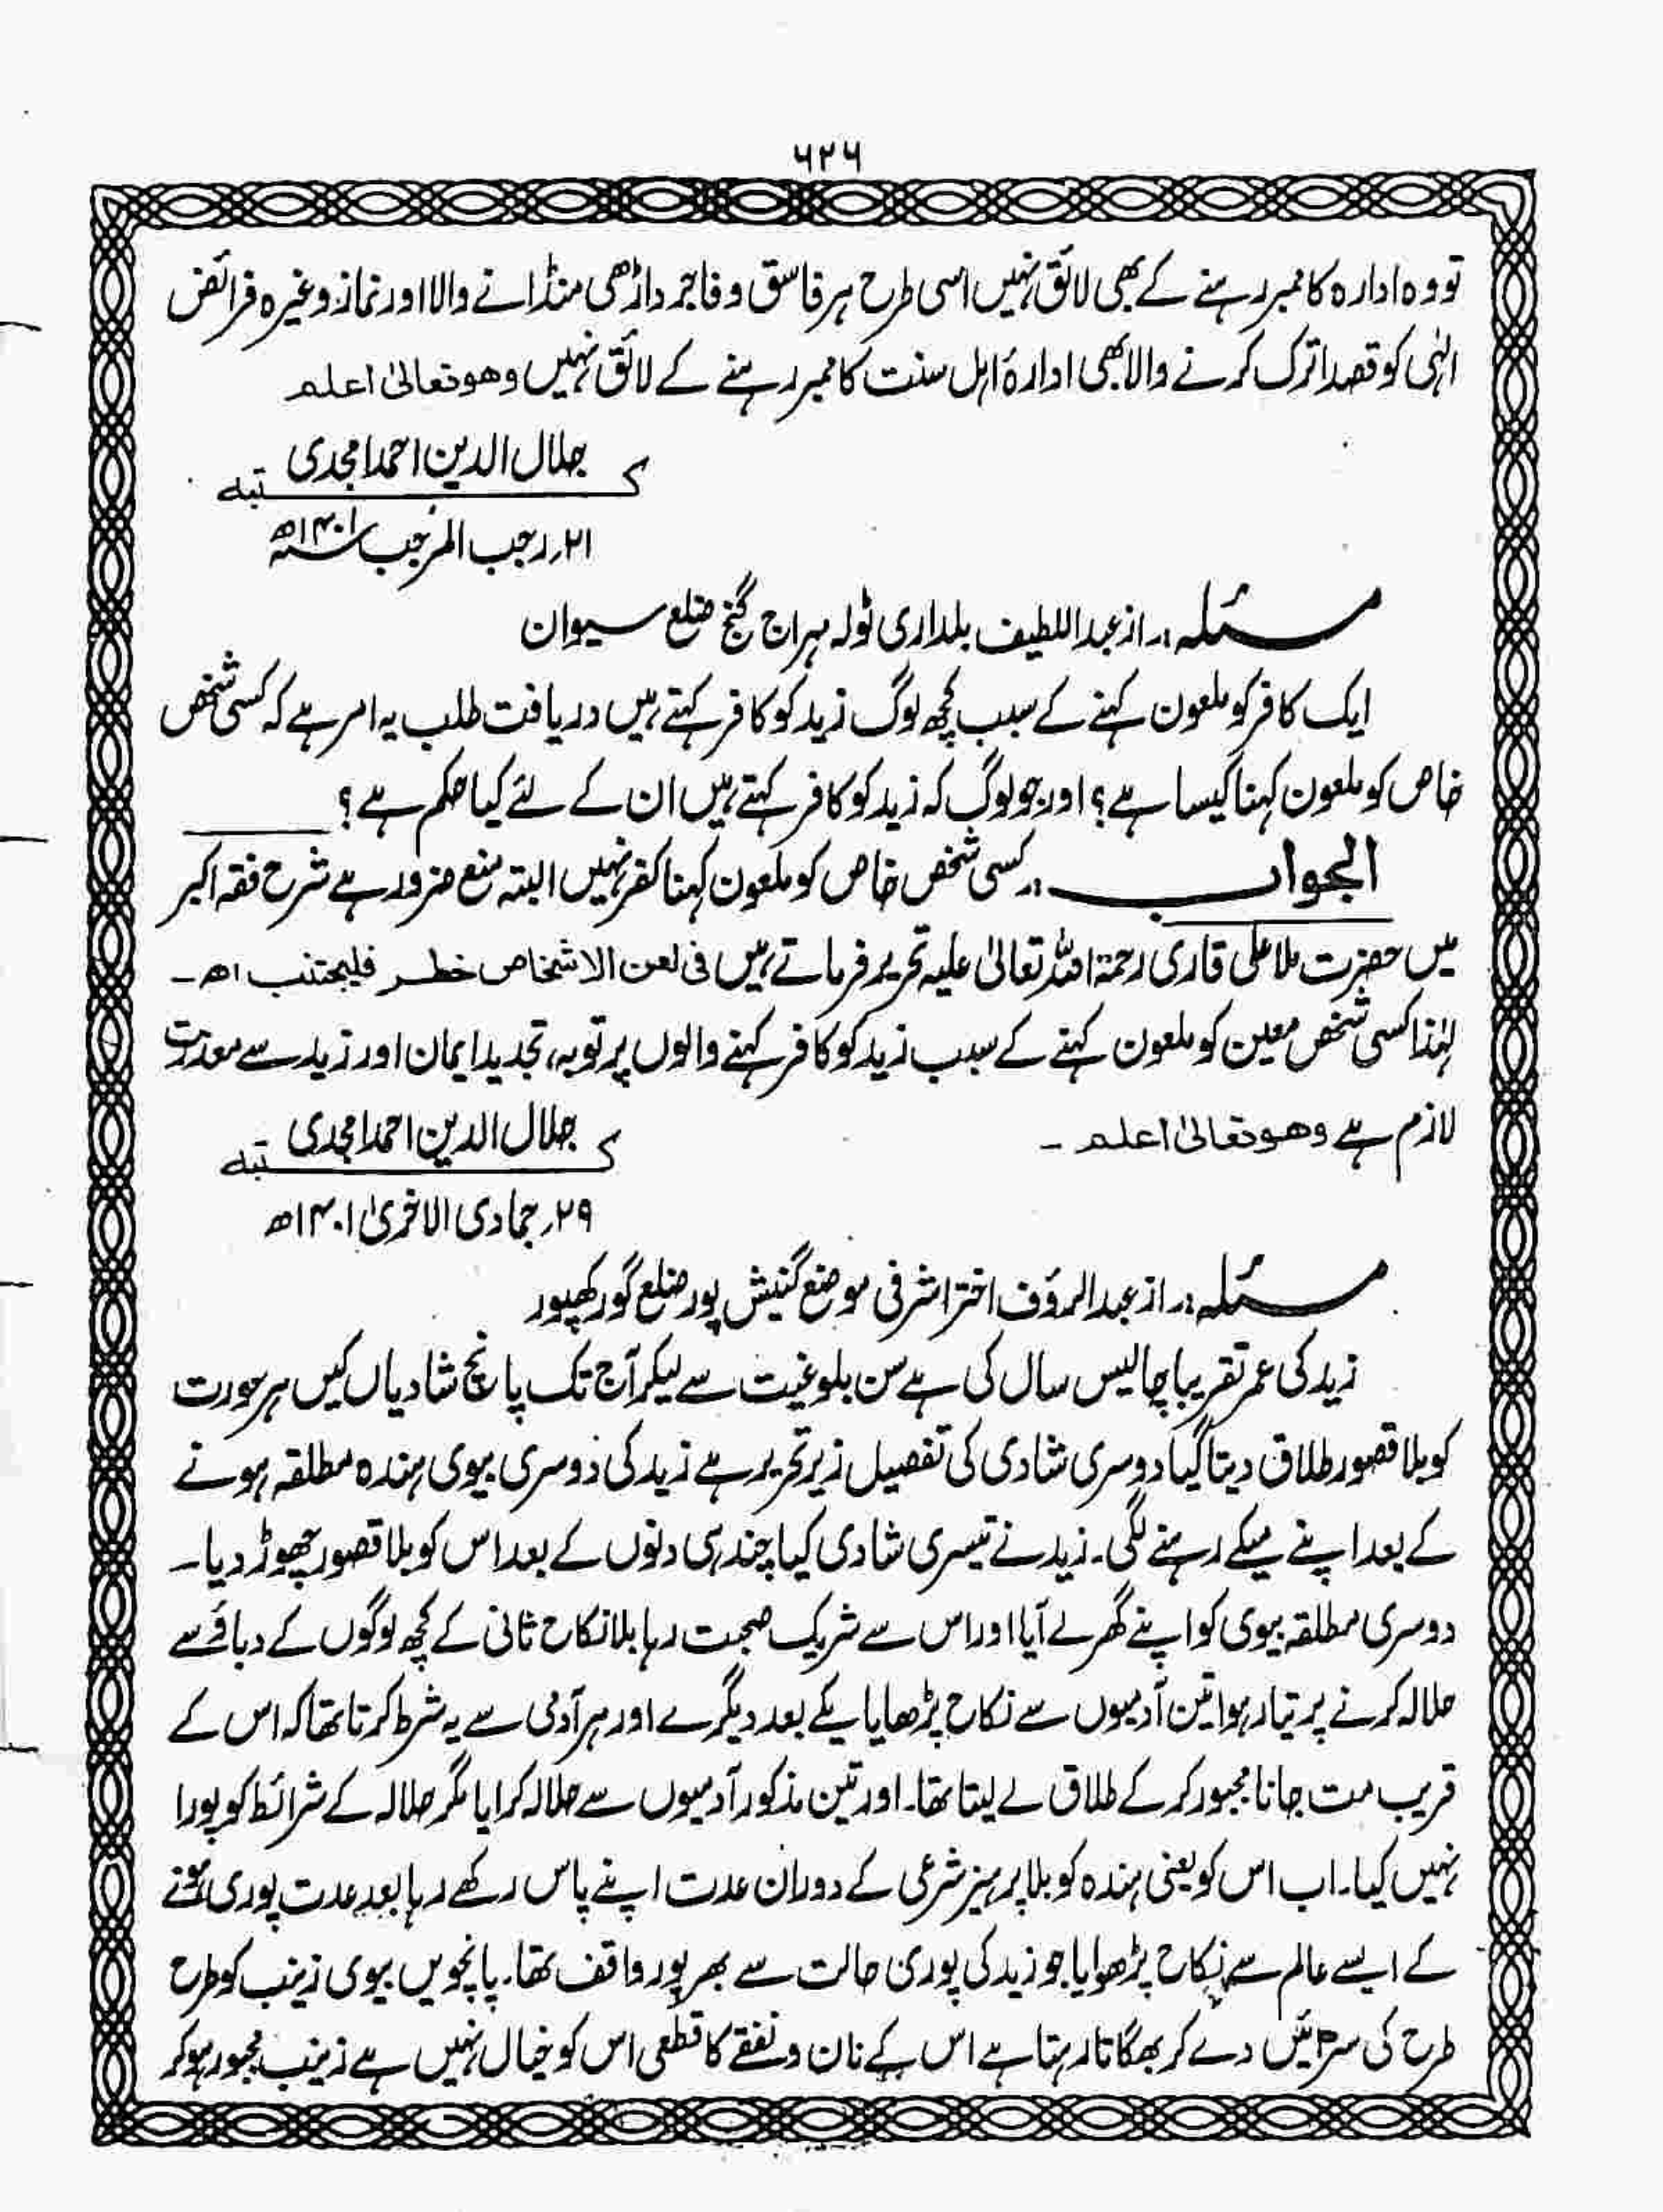 ۶۲۶
تو وہ ادارہ کا ممبر رہنے کے بھی لائق نہیں اسی طرح ہر فاسق و فاجر داڑھی منڈانے والا اور نماز وغیرہ فرائض
الٰہی کو قصدا ترک کرنے والا بھی ادارۂ اہل سنت کا ممبر رہنے کے لائق نہیں وھو تعالیٰ اعلم
کتبہ جلال الدین احمد امجدی
۲۱؍ رجب المرجب سنہ ۱۴۰۱ھ
مسئلہ:۔ از عبد اللطیف بلداری ٹولہ مہراج گنج ضلع سیوان
ایک کافر کو ملعون کہنے کے سبب کچھ لوگ زید کو کافر کہتے ہیں دریافت طلب یہ امر ہے کہ کسی شخص
خاص کو ملعون کہنا کیسا ہے؟ اور جو لوگ کہ زید کو کافر کہتے ہیں ان کے لئے کیا حکم ہے؟
الجواب:۔ کسی شخص خاص کو ملعون کہنا کفر نہیں البتہ منع ضرور ہے شرح فقہ اکبر
میں حضرت ملا علی قاری رحمۃ اللہ تعالیٰ علیہ تحریر فرماتے ہیں فی لعن الاشخاص خطر فلیجتنب اھ۔
لہٰذا کسی شخص معین کو ملعون کہنے کے سبب زید کو کافر کہنے والوں پر توبہ، تجدید ایمان اور زید سے معذرت
لازم ہے وھو تعالیٰ اعلم ۔
کتبہ جلال الدین احمد امجدی
۲۹؍ جمادی الاخریٰ ۱۴۰۱ھ
مسئلہ:۔ از عبد الرؤف اختر اشرفی موضع گنیش پور ضلع گورکھپور
زید کی عمر تقریبا چالیس سال کی ہے سن بلوغیت سے لیکر آج تک پانچ شادیاں کیں ہر عورت
کو بلا قصور طلاق دیتا گیا دوسری شادی کی تفصیل زیر تحریر ہے زید کی دوسری بیوی ہندہ مطلقہ ہونے
کے بعد اپنے میکے رہنے لگی۔ زید نے تیسری شادی کیا چند ہی دنوں کے بعد اس کو بلا قصور چھوڑ دیا۔
دوسری مطلقہ بیوی کو اپنے گھر لے آیا اور اس سے شریک صحبت رہا بلا نکاح ثانی کے کچھ لوگوں کے دباؤ سے
حلالہ کرنے پر تیار ہوا تین آدمیوں سے نکاح پڑھایا یکے بعد دیگرے اور ہر آدمی سے یہ شرط کرتا تھا کہ اس کے
قریب مت جانا مجبور کر کے طلاق لے لیتا تھا۔ اور تین مذکور آدمیوں سے حلالہ کرایا مگر حلالہ کے شرائط کو پورا
نہیں کیا۔ اب اس کو یعنی ہندہ کو بلا پرہیز شرعی کے دوران عدت اپنے پاس رکھے رہا بعد عدت پوری ہونے
کے ایسے عالم سے نکاح پڑھوایا جو زید کی پوری حالت سے بھر پور واقف تھا۔ پانچویں بیوی زینب کو طرح
طرح کی سزائیں دے کر بھگاتا رہتا ہے اس کے نان و نفقے کا قطعی اس کو خیال نہیں ہے زینب مجبور ہو کر